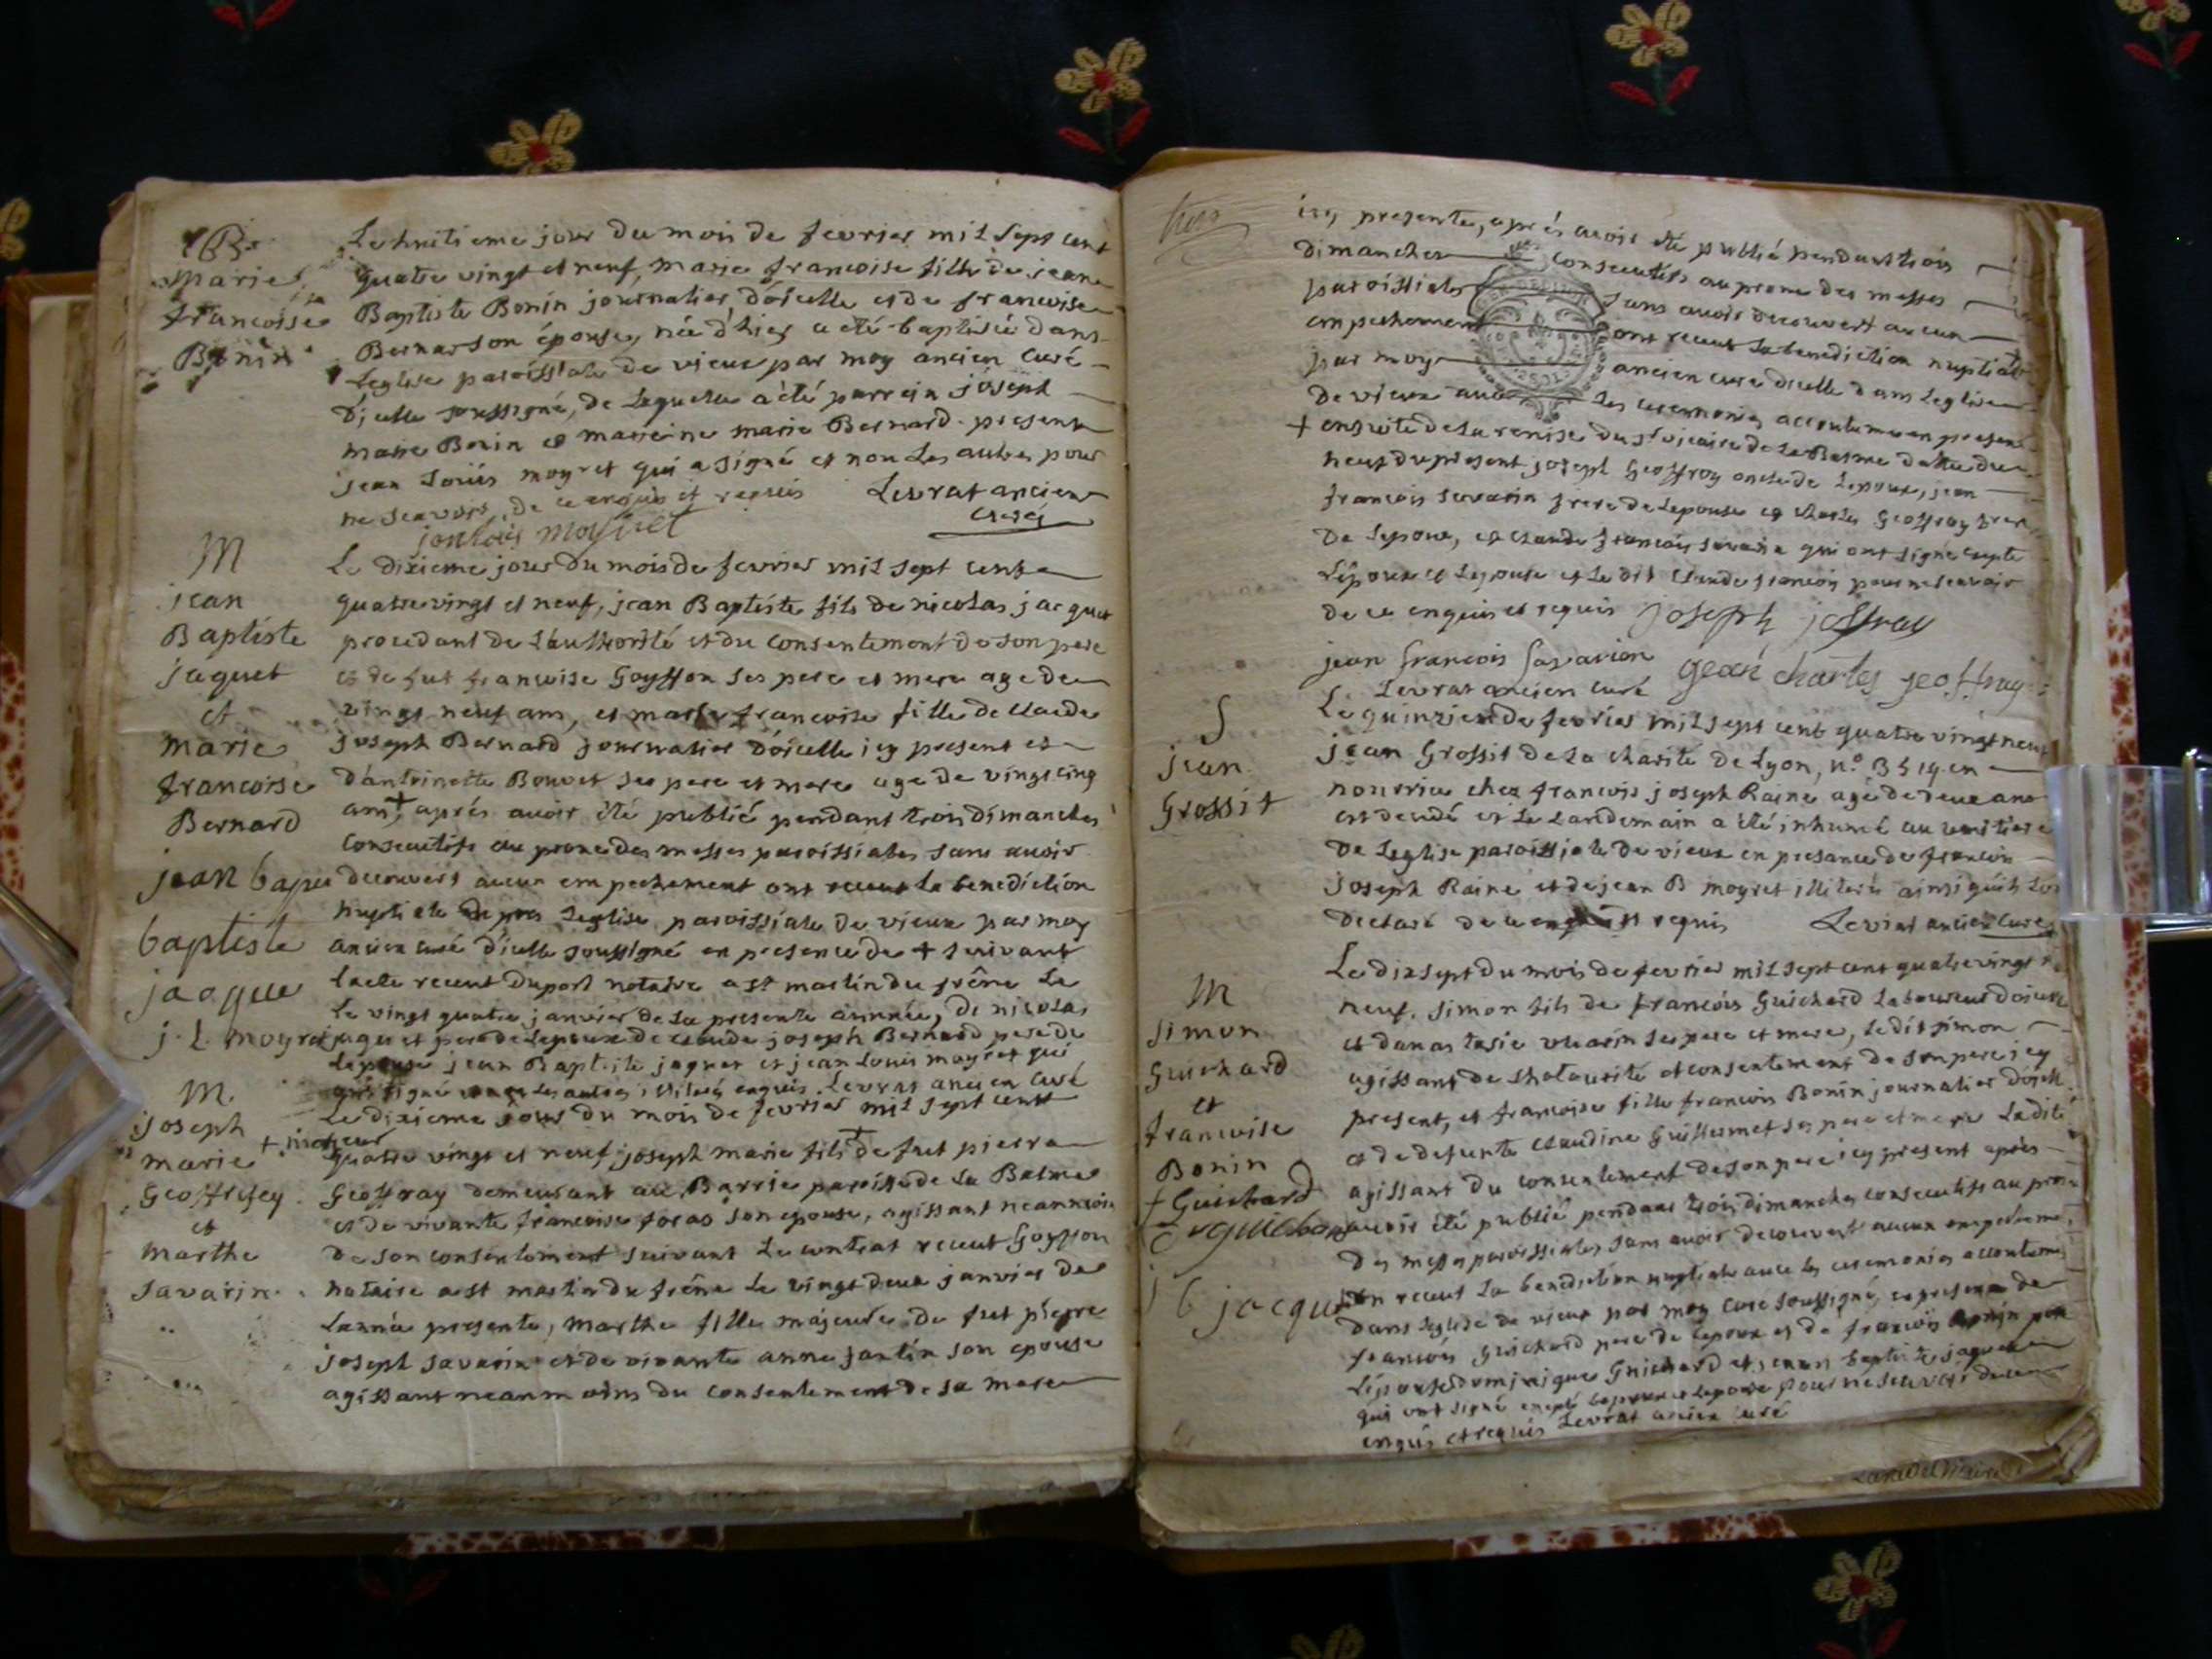 B
Marie
francoise
Bonin
Le huitieme jour du mois de fevrier mil sept cent
quatre vingt et neuf, marie francoise fille de jean
Baptiste Bonin journalier d'oicelle et de francoise
Bernar son épouse, née d'hier a eté baptiseé dans
Leglise paroissiale de vieux par moy ancien curé
d'icelle soussigné, de Laquelle a été parrein joseph
marie Bonin et marreine marie Bernard. present
jean Loüis moyret qui a signé et non Les autres pour
ne scavoir, de ce enquis et requis Levrat ancien
curé
jan Loüis moyret
M
jean
Baptiste
jaquet
et
marie
francoise
Bernard
Le dixieme jour du mois de fevrier mil sept cent
quatre vingt et neuf, jean Baptiste fils de nicolas jacquet
procedant de L'authorité et du consentement de son pere
et de fut francoise Goyffon ses pere et mere age de
vingt neuf ans, et marie francoise fille de claude
joseph Bernard journalier d'oicelle icy present et
d'antoinette Bouvet ses pere et mere age de vingt cinq
ans, + aprés avoir été publié pendant trois dimanches
consecutifs au prone des messes paroissiales sans avoir
decouvert aucun empechement ont receut La benediction
nuptiale Leglise paroissiale de vieux par moy
ancien curé d'icelle soussigné en presence de + suivant
Lacte receut Duport notaire a st martin du frêne Le
Le vingt quatre janvier de La presente année, de nicolas
jaquet pere de Lepoux de claude joseph Bernard pere de
Lepouse jean Baptiste jaquet et jean Louis moyret qui
ont signé Les autres illiterés enquis Levrat ancien curé
jean bapti
baptiste
jacque
j. L. moyret
M
joseph
marie
Geoffrey
et
marthe
savarin
Le dixieme jour du mois de fevrier mil sept cent
+ mineur
quatre vingt et neuf joseph marie fils + de fut pierre
Geoffray demeurant au Barrio paroisse de La Balme
et de vivante francoise foras son epouse, agissant neanmoins
de son consentement suivant Le contrat receut Goyffon
notaire a st martin du frêne Le vingt deux janvier de
Lannée presente, marthe fille majeure de fut pierre
joseph savarin et de vivante anne jantin son epouse
agissant neanmoins du consentement de sa mere
icy presente, aprés avoir été publié pendant trois
dimanches consecutifs au prone des messes
paroissiales sans avoir decouvert aucun
empechement ont receut La benediction nuptiale
par moy ancien curé dicelle dans Leglise
de vieux avec Les ceremonies accoutumées en presence
+ ensuite de La remise du sr vicaire de La Balme dattée du
neuf du present joseph Geoffroy oncle de Lepoux, jean
francois savarin frere de Lepouse et charles Geoffray frere
de Lepoux, et claude francois savarin qui ont signé excepte
Lépoux et Lepouse et Le dit claude francois pour ne scavoir
de ce enquis et requis joseph joffray
jean francois savarion gean charles geoffray
Levrat ancien curé
S
jean
Grossit
Le quinzieme de fevrier mil sept cent quatre vingt neuf
jean Grossit de La charité de Lyon, n.° 3519 en
nourrice chez francois joseph Raine agé de deux ans
est decedé et Le Landemain a été inhumé au cemitiere
de Leglise paroissiale de vieux en presance de francois
joseph Raine et de jean B moyret illiterés ainsi qu'ils Lont
declaré de ce enquis et requis Levrat ancien curé
M
simon
Guichard
et
francoise
Bonin
+ Guichard
j b jacquet
Le dix sept du mois de fevrier mil sept cent quatre vingt
neuf. simon fils de francois Guichard Laboureur doicelle
et d'anastasie vuarin ses pere et mere, Le dit simon
agissant de Lhotaurité et consentement de son pere icy
present, et francoise fille francois Bonin journalier d'oicelle
et de defunte claudine Guillermet ses pere et mere Ladite
agissant du consentement de son pere icy present aprés
avoir été publié pendant trois dimanches consecutifs au prone
des messes paroissiales sans avoir decouvert aucun empechement
ont receut La benediction nuptiale avec Les ceremonies accoutumés
dans Leglise de vieux par moy curé soussigné, en presence de
francois Guichard pere de Lepoux et de francois Bonin pere
Lépouse dominique Guichard et jean baptiste jaquet
qui ont signé excepté Lepoux et Lepouse pour ne scavoir de ce
enquis et requis Levrat ancien curé